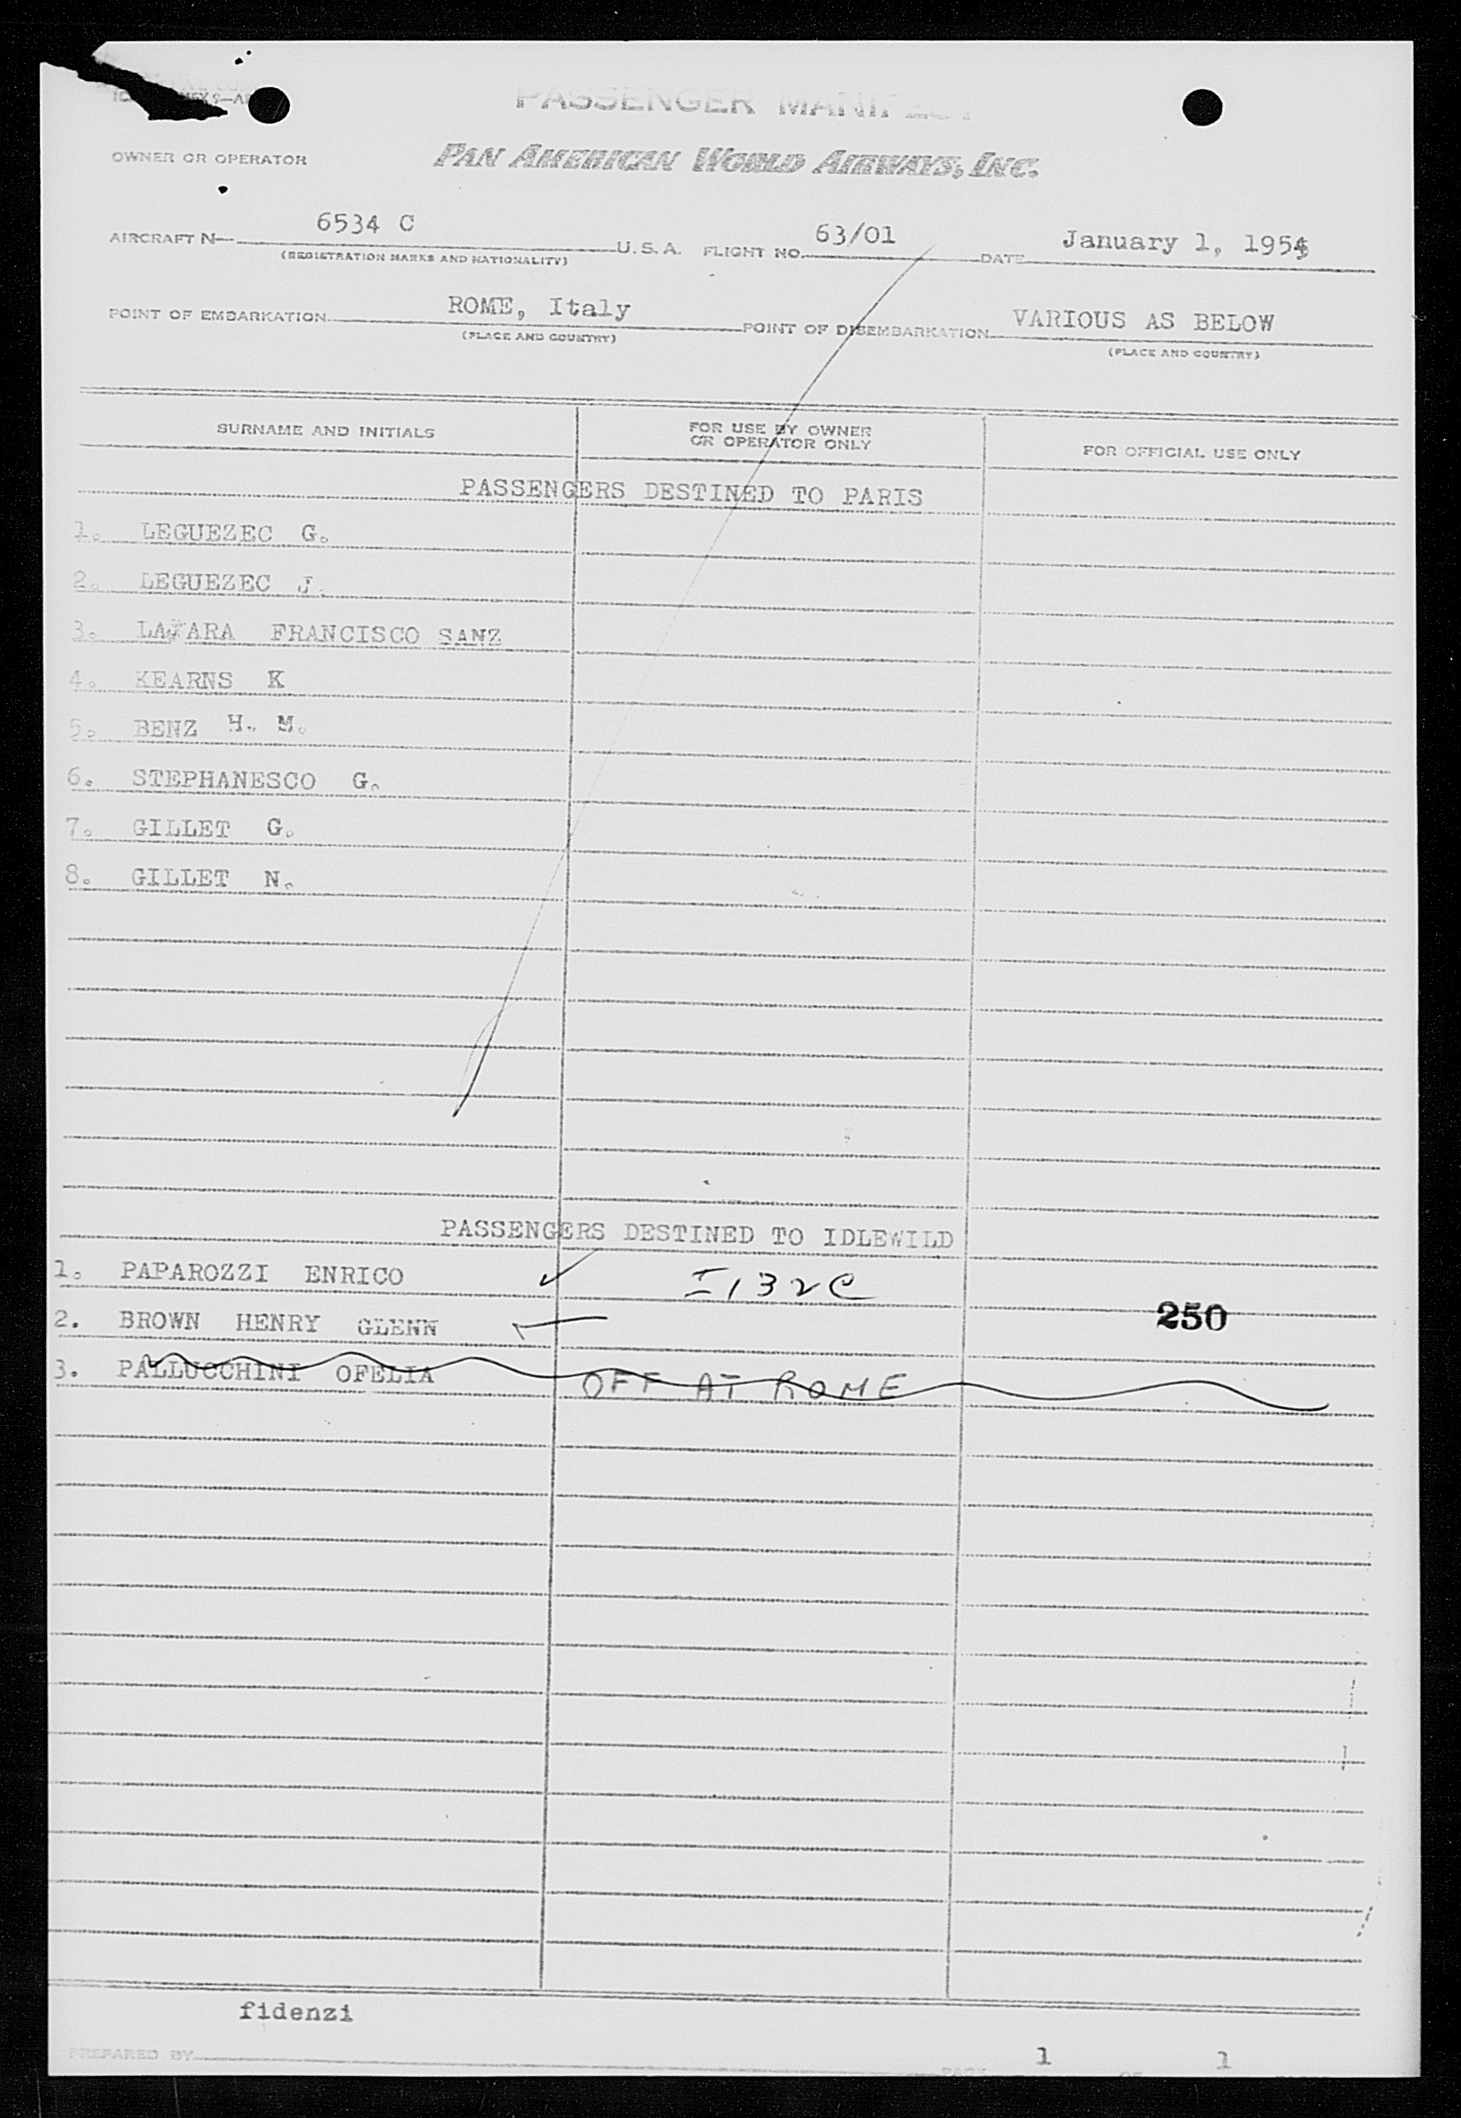 PASSENGER MANIFEST
OWNER OR OPERATOR PAN AMERICAN WORLD AIRWAYS, INC.
AIRCRAFT N— 6534 C U.S.A. FLIGHT NO. 63/01 DATE January 1, 1954
(REGISTRATION MARKS AND NATIONALITY)
POINT OF EMBARKATION ROME, Italy POINT OF DISEMBARKATION VARIOUS AS BELOW
(PLACE AND COUNTRY) (PLACE AND COUNTRY)
SURNAME AND INITIALS FOR USE BY OWNER OR OPERATOR ONLY FOR OFFICIAL USE ONLY
PASSENGERS DESTINED TO PARIS
1. LEGUEZEC G.
2. LEGUEZEC J.
3. FRANCISCO SANZ
4. KEARNS K
5. BENZ H. M.
6. STEPHANESCO G.
7. GILLET G.
8. GILLET N.
PASSENGERS DESTINED TO IDLEWILD
1. PAPAROZZI ENRICO I132C
2. BROWN HENRY GLENN 250
3. PALLUCCHINI OFELIA OFF AT ROME
fidenzi
PREPARED BY PAGE 1 OF 1